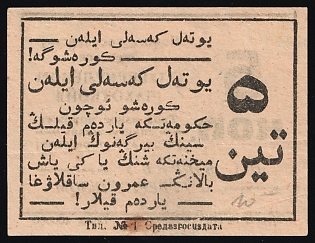 يوتەل كەسەلى ايلەن
كورەشوگە!
يوتەل كەسەلى ايلەن
كورەشو ئوچون
حكومەتكە ياردەم قيلىڭ
سينىڭ بيرگەنوڭ ايلەن
ميختەتكە شىڭ ياكى ياش
بالانىڭ عمرون ساقلاوغا
ياردەم قيلار!
۵
تين
Тип. № 1 Средазгосиздата